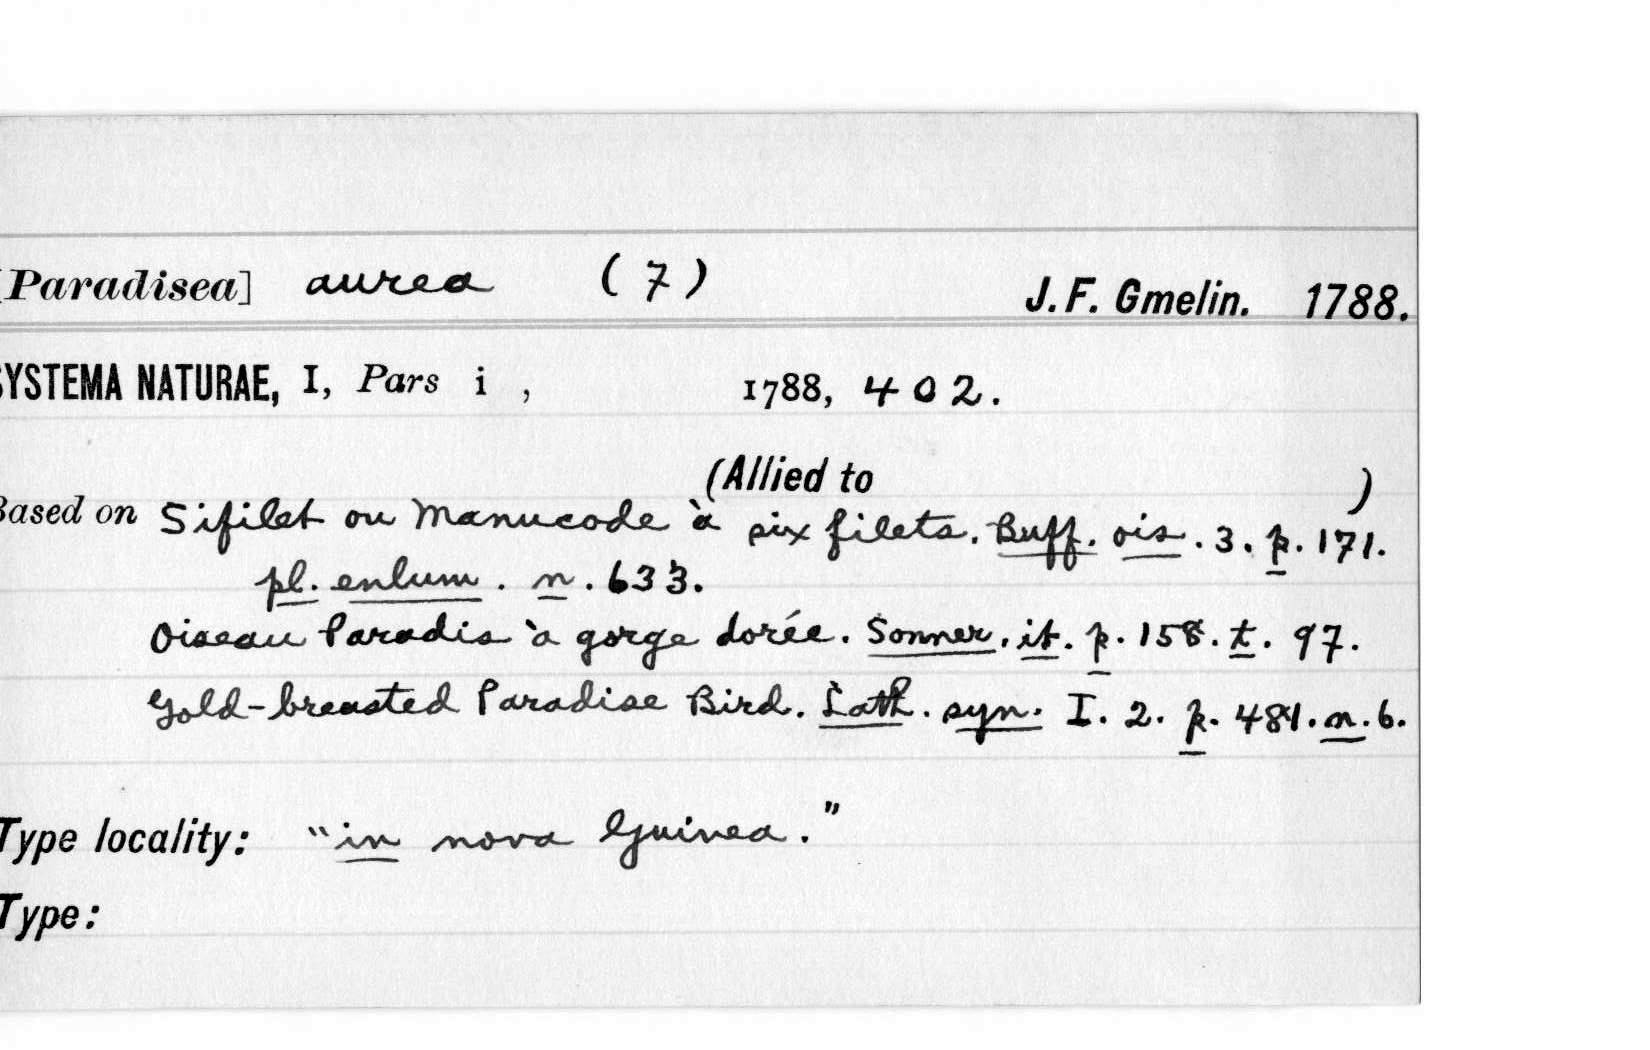 [Paradisea] aurea (7) J. F. Gmelin. 1788.
SYSTEMA NATURAE, I, Pars i , 1788, 402.
(Allied to )
Based on Sifilet ou Manucode à six filets. Buff. ois. 3. p. 171.
pl. enlum. n. 633.
Oiseau Paradis à gorge dorée. Sonner. it. p. 158. t. 97.
Gold-breasted Paradise Bird. Lath. syn. I. 2. p. 481. n. 6.
Type locality: "in nova Guinea."
Type: